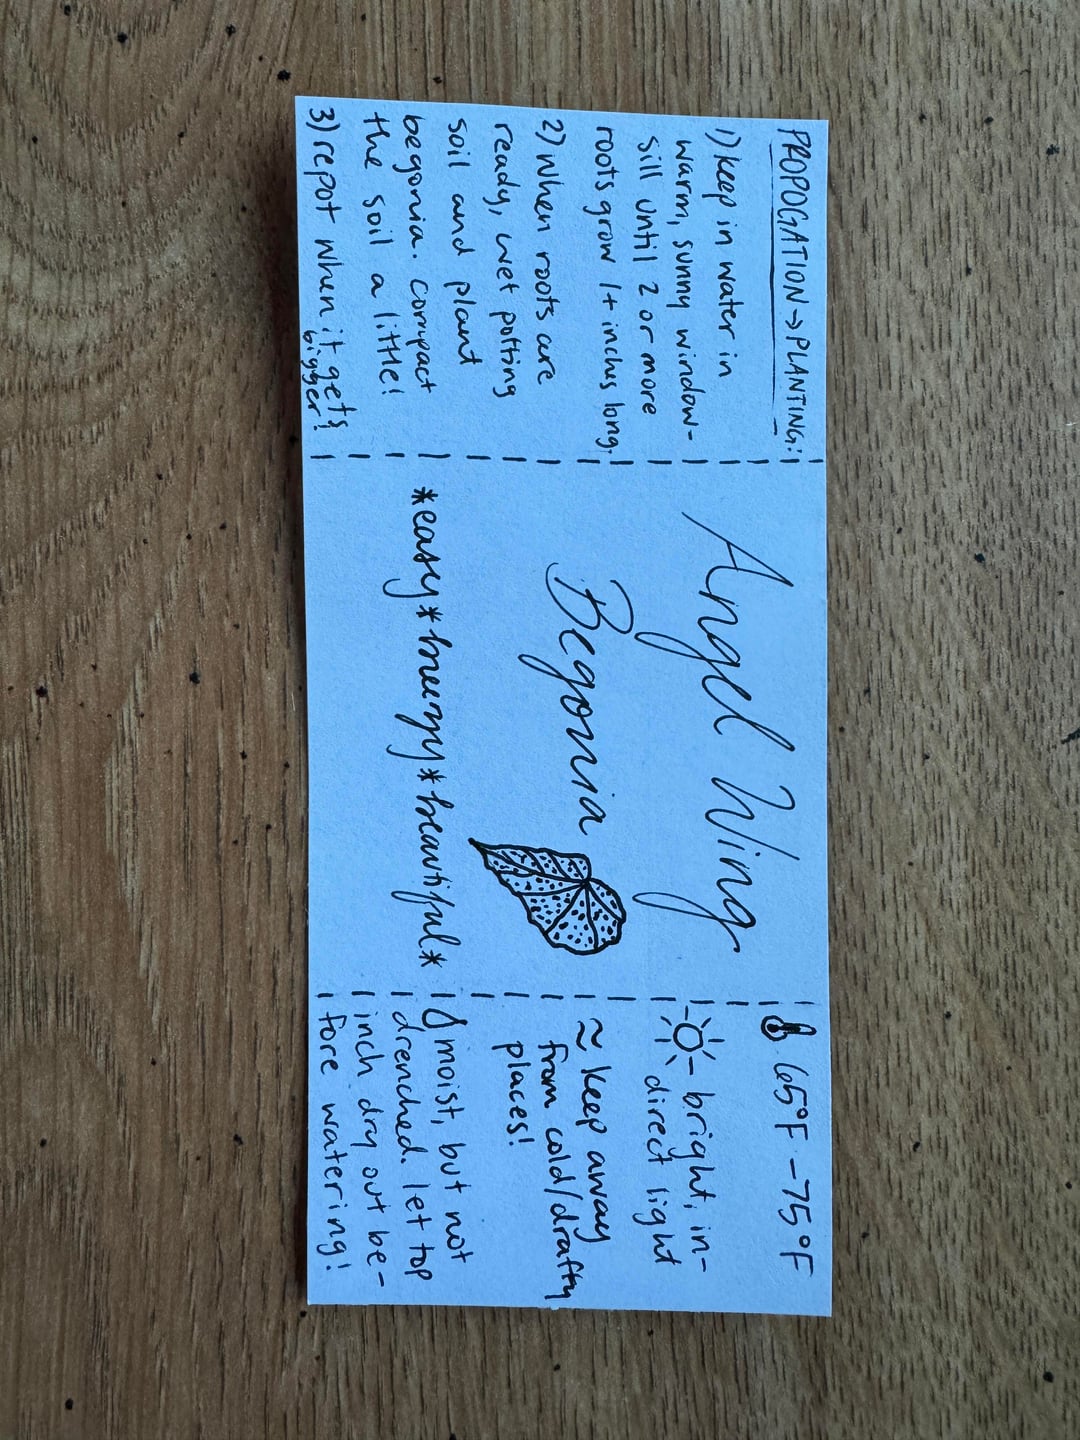 PROPOGATION → PLANTING:
1) keep in water in
warm, sunny window-
sill until 2 or more
roots grow 1+ inches long.
2) when roots are
ready, wet potting
soil and plant
begonia. compact
the soil a little!
3) repot when it gets
bigger!
Angel Wing
Begonia
*easy*breezy*beautiful*
65°F - 75°F
bright, in-
direct light
≈ keep away
from cold/drafty
places!
moist, but not
drenched. let top
inch dry out be-
fore watering!